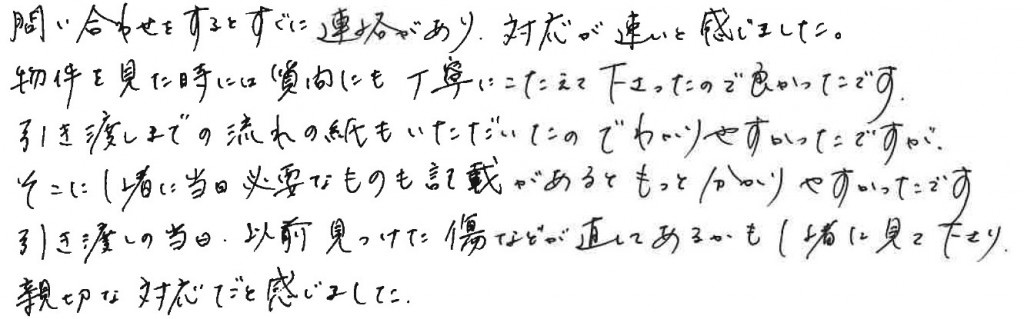 問い合わせをするとすぐに連絡があり、対応が速いと感じました。
物件を見た時には質問にも丁寧にこたえて下さったので良かったです。
引き渡しまでの流れの紙もいただいたのでわかりやすかったですが、
そこに1緒に当日必要なものも記載があるともっと分かりやすかったです
引き渡しの当日、以前見つけた傷などが直してあるかも1緒に見て下さり、
親切な対応だと感じました。